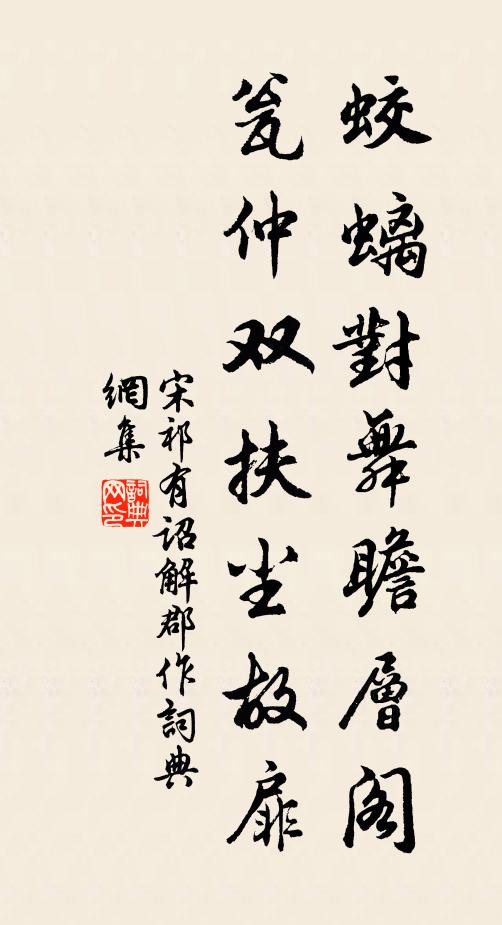 蛟螭對舞瞻層阁
瓮仲双扶坐故扉
宋祁有詔解郡作詞典
網集
詞典網印